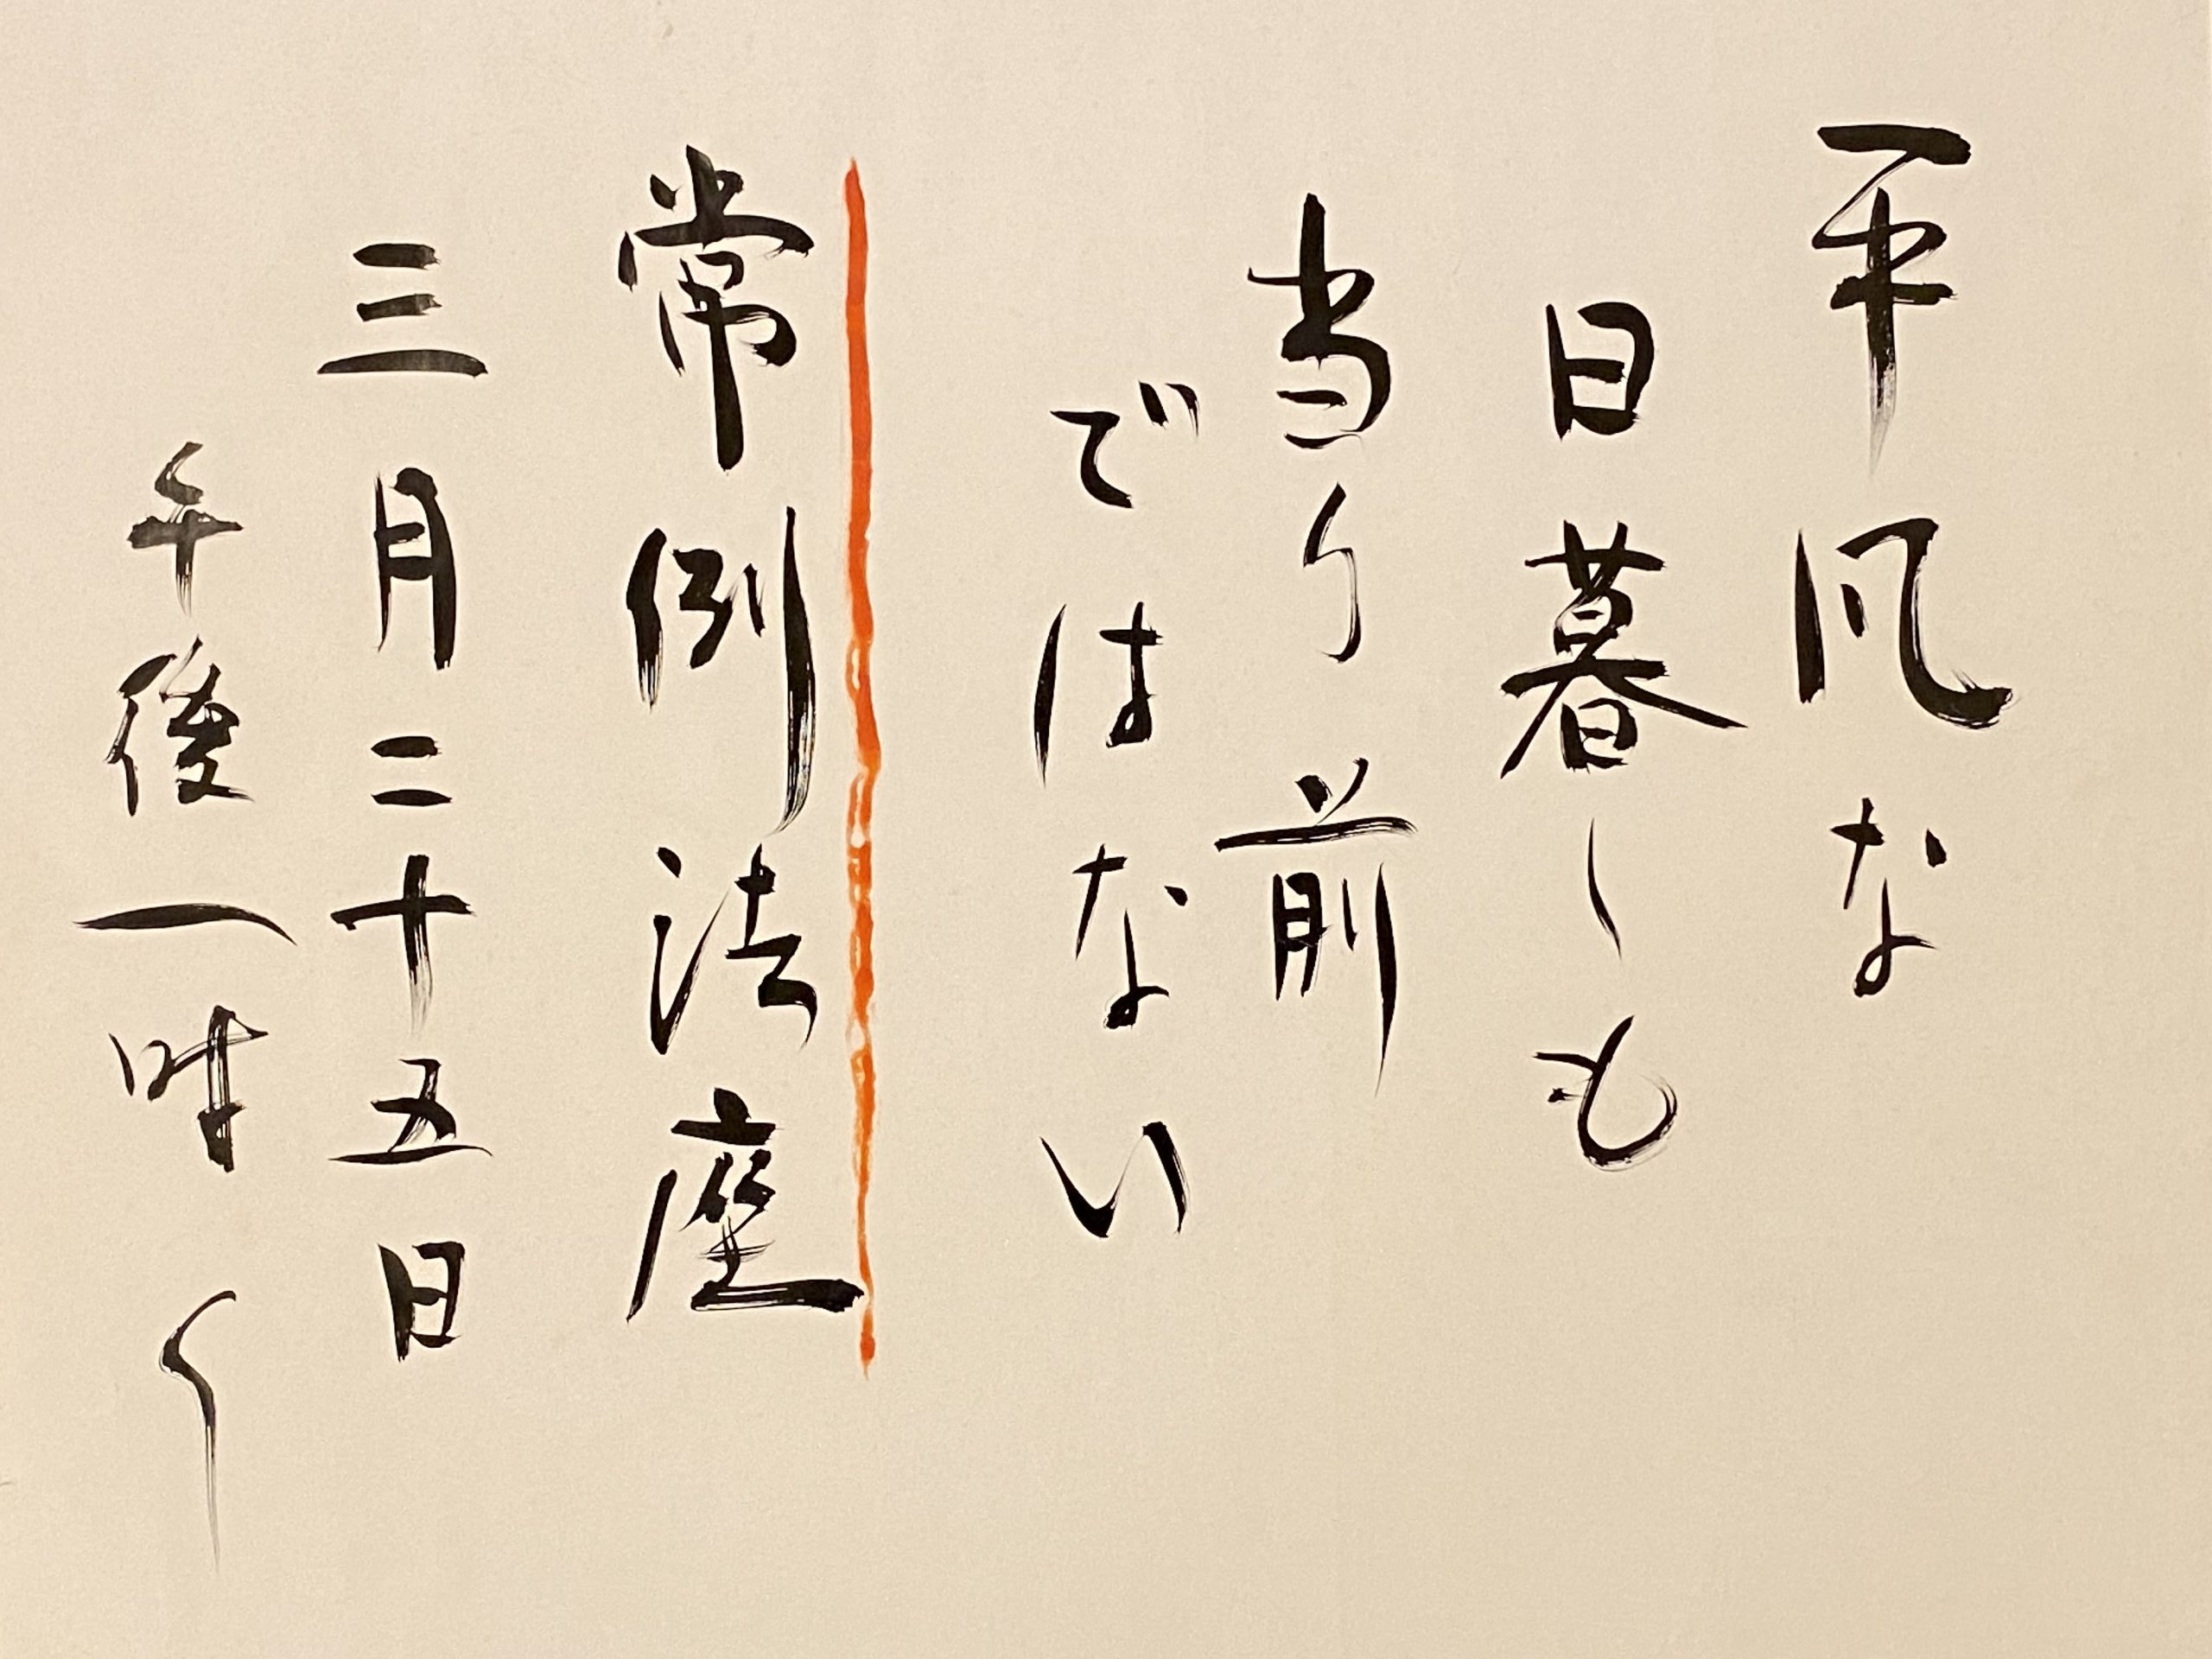 平凡な
日暮しも
当り前
ではない
常例法座
三月二十五日
午後一時〜